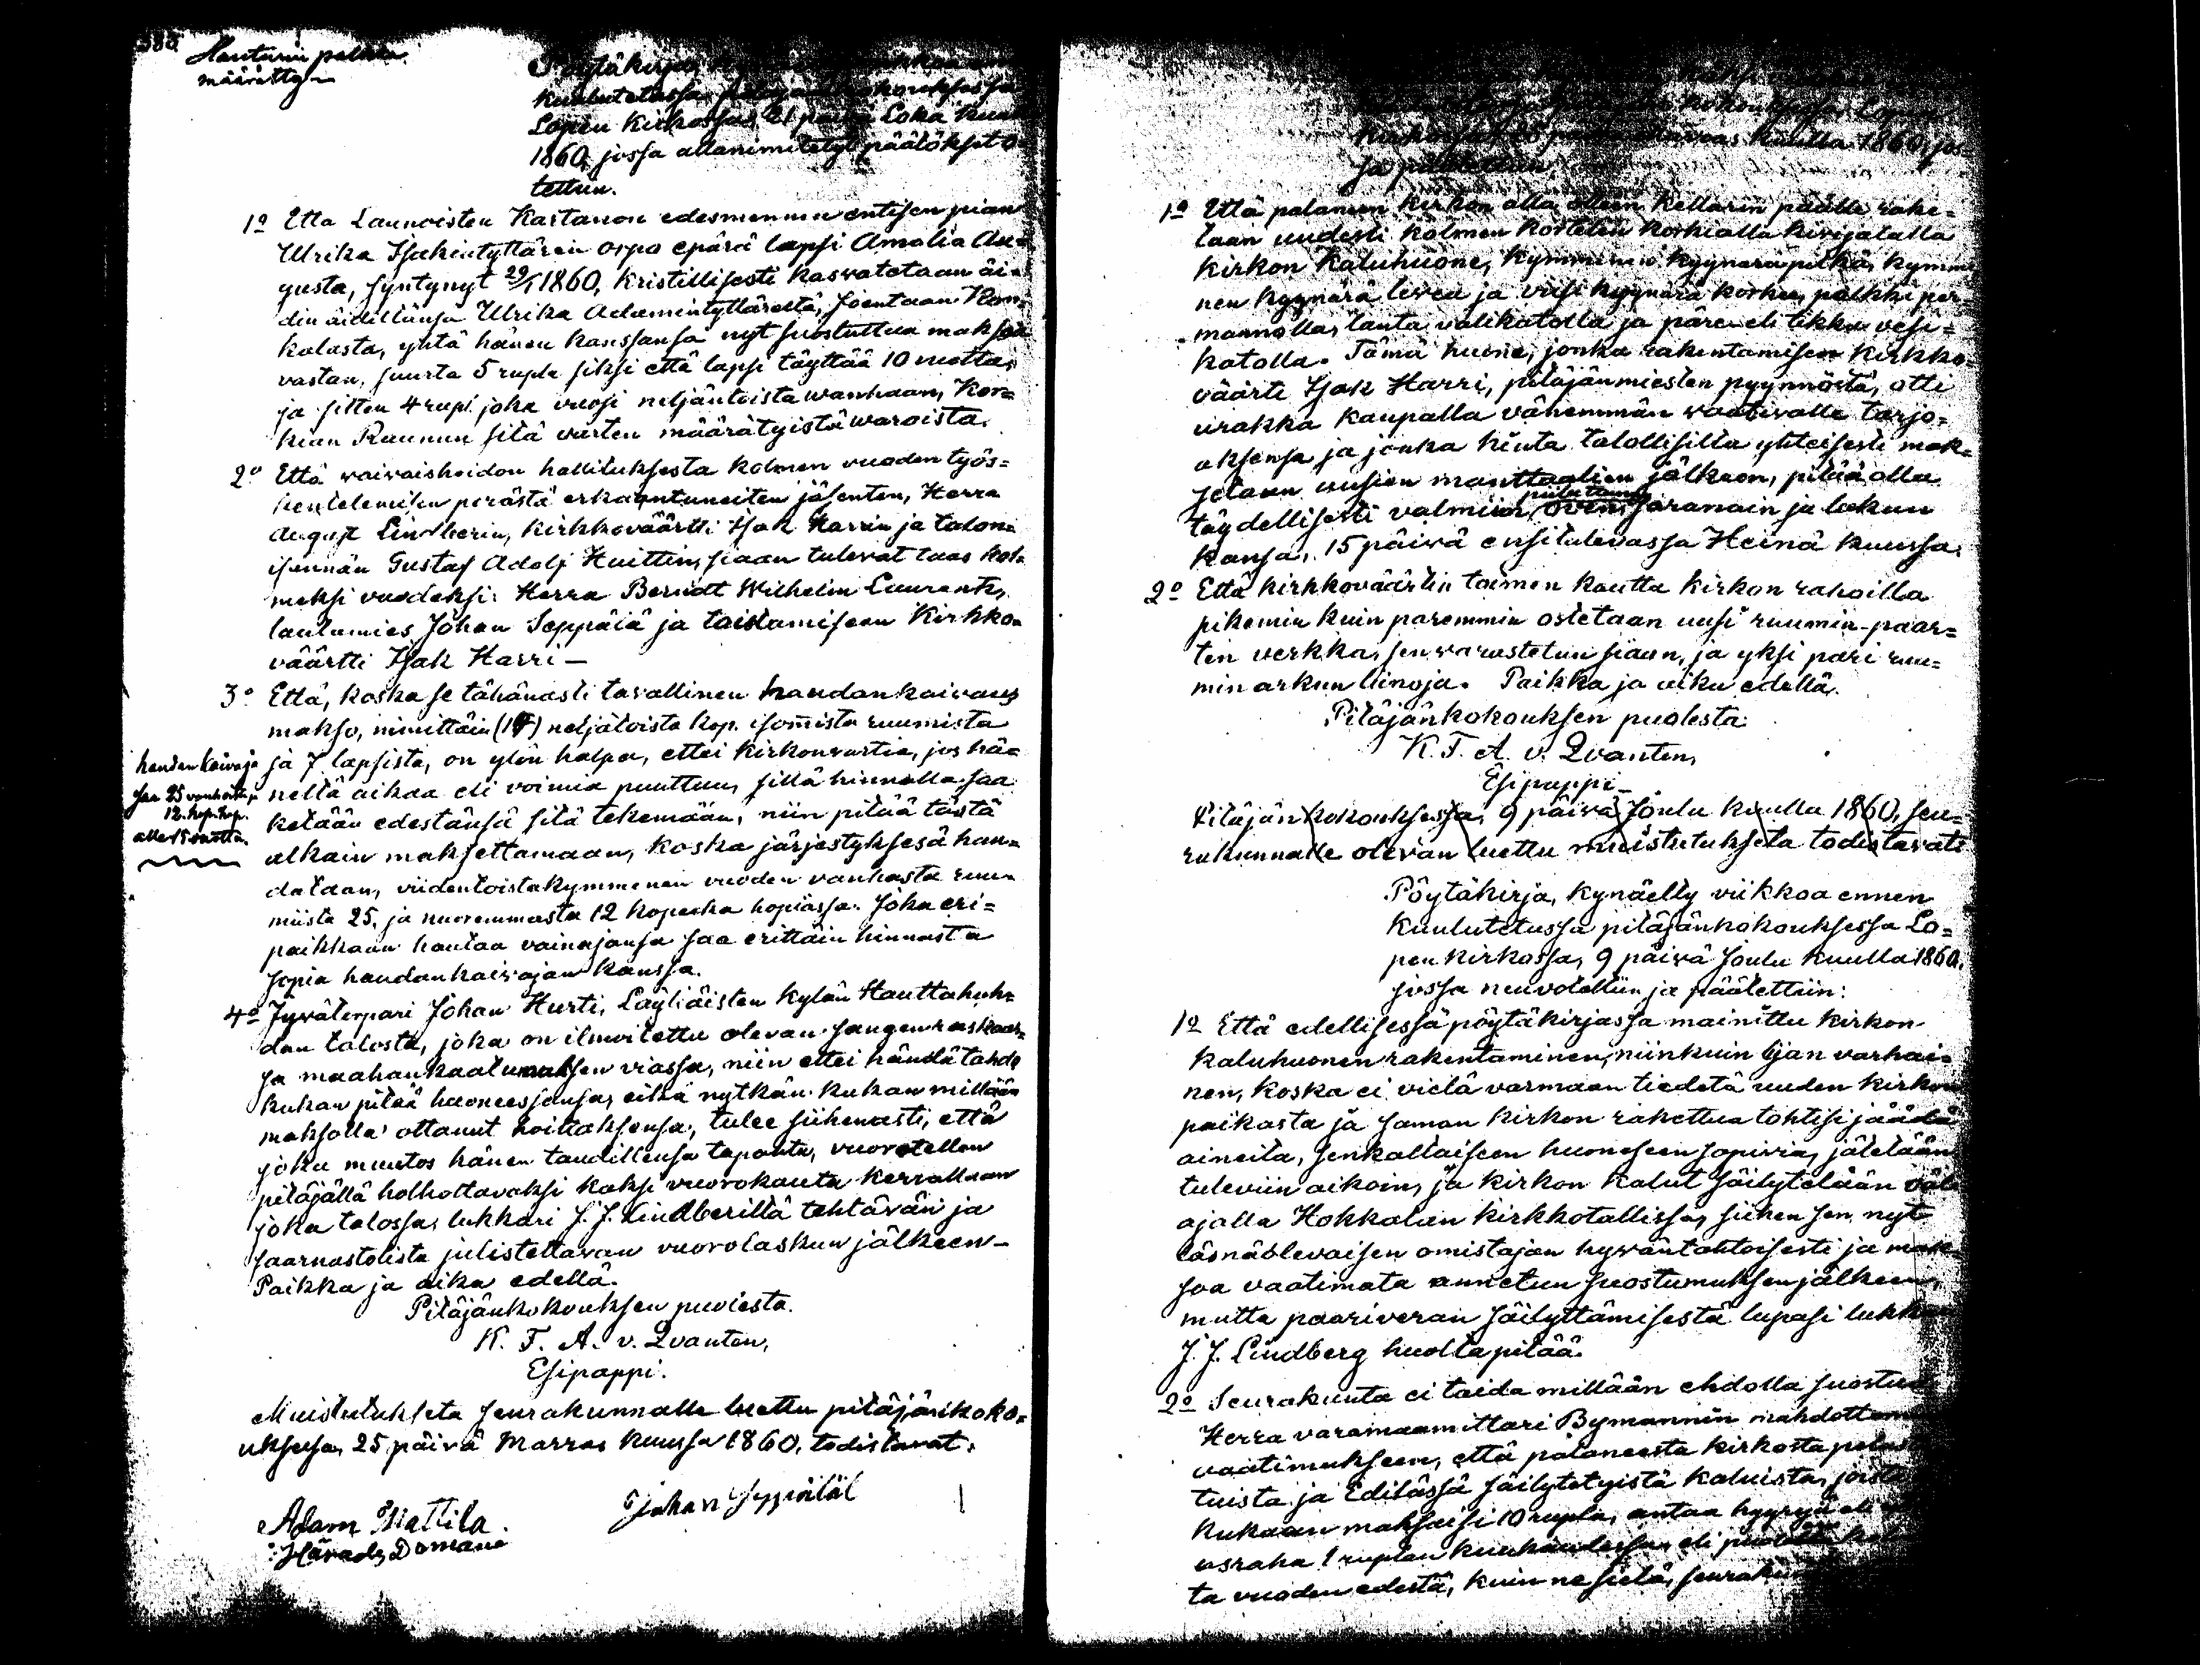 Hauturin palkka
määrätty
Pöytäkirja,
kuulutetussa pitäjänkokouksessa
Lopen Kirkossa, 21 päivä Loka kuus
1860, jossa allanimitetyt päätökset o-
tettun.
1º Että Launoisten Kartanon edesmennen entisen pian
Ulrika Isakintyttären orpo epärä lapsi Amalia Au=
gusta, syntynyt 29/1 1860, kristillisesti kasvatetaan äi=
din äidillänsä Ulrika Adamintyttäreltä, Joentaan Ran=
kalasta, yhtä hänen kanssansa nyt suostuttua maksoa
vastan, suurta 5 rupla siksi että lapsi täyttää 10 vuotta,
ja sitten 4 rupl. joka vuosi neljäntoista wanhaan, Kor=
kian Ruunun sitä varten määrätyistä waroista.
2º Että vaivaishoidon hallituksesta kolmen vuoden työs=
kentelemisen perästä erkaantuneiten jäsenten, Herra
August Lindberin, Kirkkoväärtti Isak Harrin ja talon=
isännän Gustaf Adolf Huittin, siaan tulevat taas kol=
meksi vuodeksi: Herra Berndt Wilhelm Laurenk,
lautamies Johan Seppälä ja toistamiseen Kirkko=
väärtti Isak Harri —
3º Että, koska se tähänasti tavallinen haudankaivaus
makso, nimittäin (14) neljätoista kop. isommista ruumista
ja 7 lapsista, on ylön halpa, ettei kirkonvartia, jos hä=
neltä aikaa eli voimia puuttuu, sillä hinnalla saa
ketään edestänsä sitä tekemään, niin pitää tästä
alkain maksettamaan, koska järjestyksesä hau=
dataan, viidentoistakymmenen vuoden vanhasta ruu=
miista 25, ja nuoremmasta 12 kopecka hopiassa. Joka eri=
paikkaan hautaa vainajansa saa erittäin hinnasta
sopia haudankaivajan kanssa.
haudan kaivaja
saa 25 vanhoista ja
12. kop. hop.
alle 15 vuotta.
4º Jyvälerpari Johan Hurti, Läyliäisten kylän Hauttahuh=
dan talosta, joka on ilmoitettu olevan sangen raskaas=
sa maahan kaatumaksen viassa, niin ettei häntä tahdo
kukan pitää huoneesjansa, eikä nytkän kukan millään
maksolla ottanut hoittaksensa, tulee siihenasti, että
joku muutos hänen taudillensa tapahtu, vuorotellen
pitäjällä holhottavaksi kaksi vuorokautta kerrallaan
joka talossa, lukkari J. J. Lindberillä tehtävän ja
saarnastolista julistettavan vuorolaskun jälkeen —
Paikka ja aika edellä.
Pitäjänkokouksen puolesta.
K. F. A. v. Qvanten,
Esipappi.
Muistutukseta seurakunnalle luettu pitäjänkoko=
uksessa, 25 päivä Marras kuussa 1860. todistavat.
Adam Mattila
Härads Domare
Johan Seppälä
kokouksessa Lopen
kirkossa, 25 päivä Marras kuulla 1860, jos
sa päätettiin,
1º Että palaneen kirkon alla olleen kellarin päälle rake=
taan uudesti kolmen korttelin korkialla kivijalalla
kirkon kaluhuone, kymmenen kyynärä pitkä, kymme
nen kyynärä levea ja viisi kyynärä korkea, palkki per
mannolla, lauta välikatolla ja päre eli tikku vesi=
katolla. Tämä huone, jonka rakentamisen kirkko=
väärti Isak Harri, pitäjänmiesten pyynnöstä, otti
urakka kaupalla vähemmän vaativalle tarjo=
uksensa ja jonka hinta talollisilta yhteisesti mak=
setaan uusien manttaalien jälkeen, pitää olla
täydellisesti valmiin, oven saranain ja lukun
kansa, 15 päivä ensitulevassa Heinä kuussa.
2º Että kirkkoväärtin toimen kautta kirkon rahoilla
pikemin kuin paremmin ostetaan uusi ruumin-paar=
ten verkka, sen varustetun siaan, ja yksi pari ruu=
min arkun liinoja. Paikka ja aika edellä.
Pitäjänkokouksen puolesta:
K. F. A. v. Qvanten,
Esipappi —
Pitäjän kokouksessa, 9 päivä Joulu kuulla 1860, seu=
rakunnalle olevan luettu muistutukseta todistavati
Pöytäkirja, kynäelty viikkoa ennen
kuulutetussa pitäjänkokouksessa Lo=
pen kirkossa, 9 päivä Joulu kuulla 1860.
jossa neuvoteltiin ja päätettiin:
1º Että edellisessä pöytäkirjassa mainittu kirkon
kaluhuonen rakentaminen, niinkuin ljan varhai=
nen, koska ei vielä varmaan tiedetä uuden kirkon
paikasta ja saman kirkon rakettua tohtisi jäädä
aineita, senkallaiseen huoneseen sopivia, jätetään
tuleviin aikoin, ja kirkon kalut säilytetään väli
ajalla Hokkalan kirkkotallissa, siihen sen nyt
läsnäolevaisen omistajan hyväntahtoisesti ja mak
soa vaatimata annetun suostumuksen jälkeen,
mutta paariveran säilyttämisestä lupasi lukkari
J. J. Lindberg huolta pitää.
2º Seurakunta ei taida millään ehdolla suostua
Herra varamaamittari Bymannin mahdottom
vaatimukseen, että palaneesta kirkosta pelas
tuista ja Edilässä säilytetyistä kaluista, joista
kukaan maksaisi 10 rupla, antaa hyyryä eli
usraha 1 ruplan kuukaudessa, eli puoletta
ta vuoden edestä, kuin ne sielä, seuraku